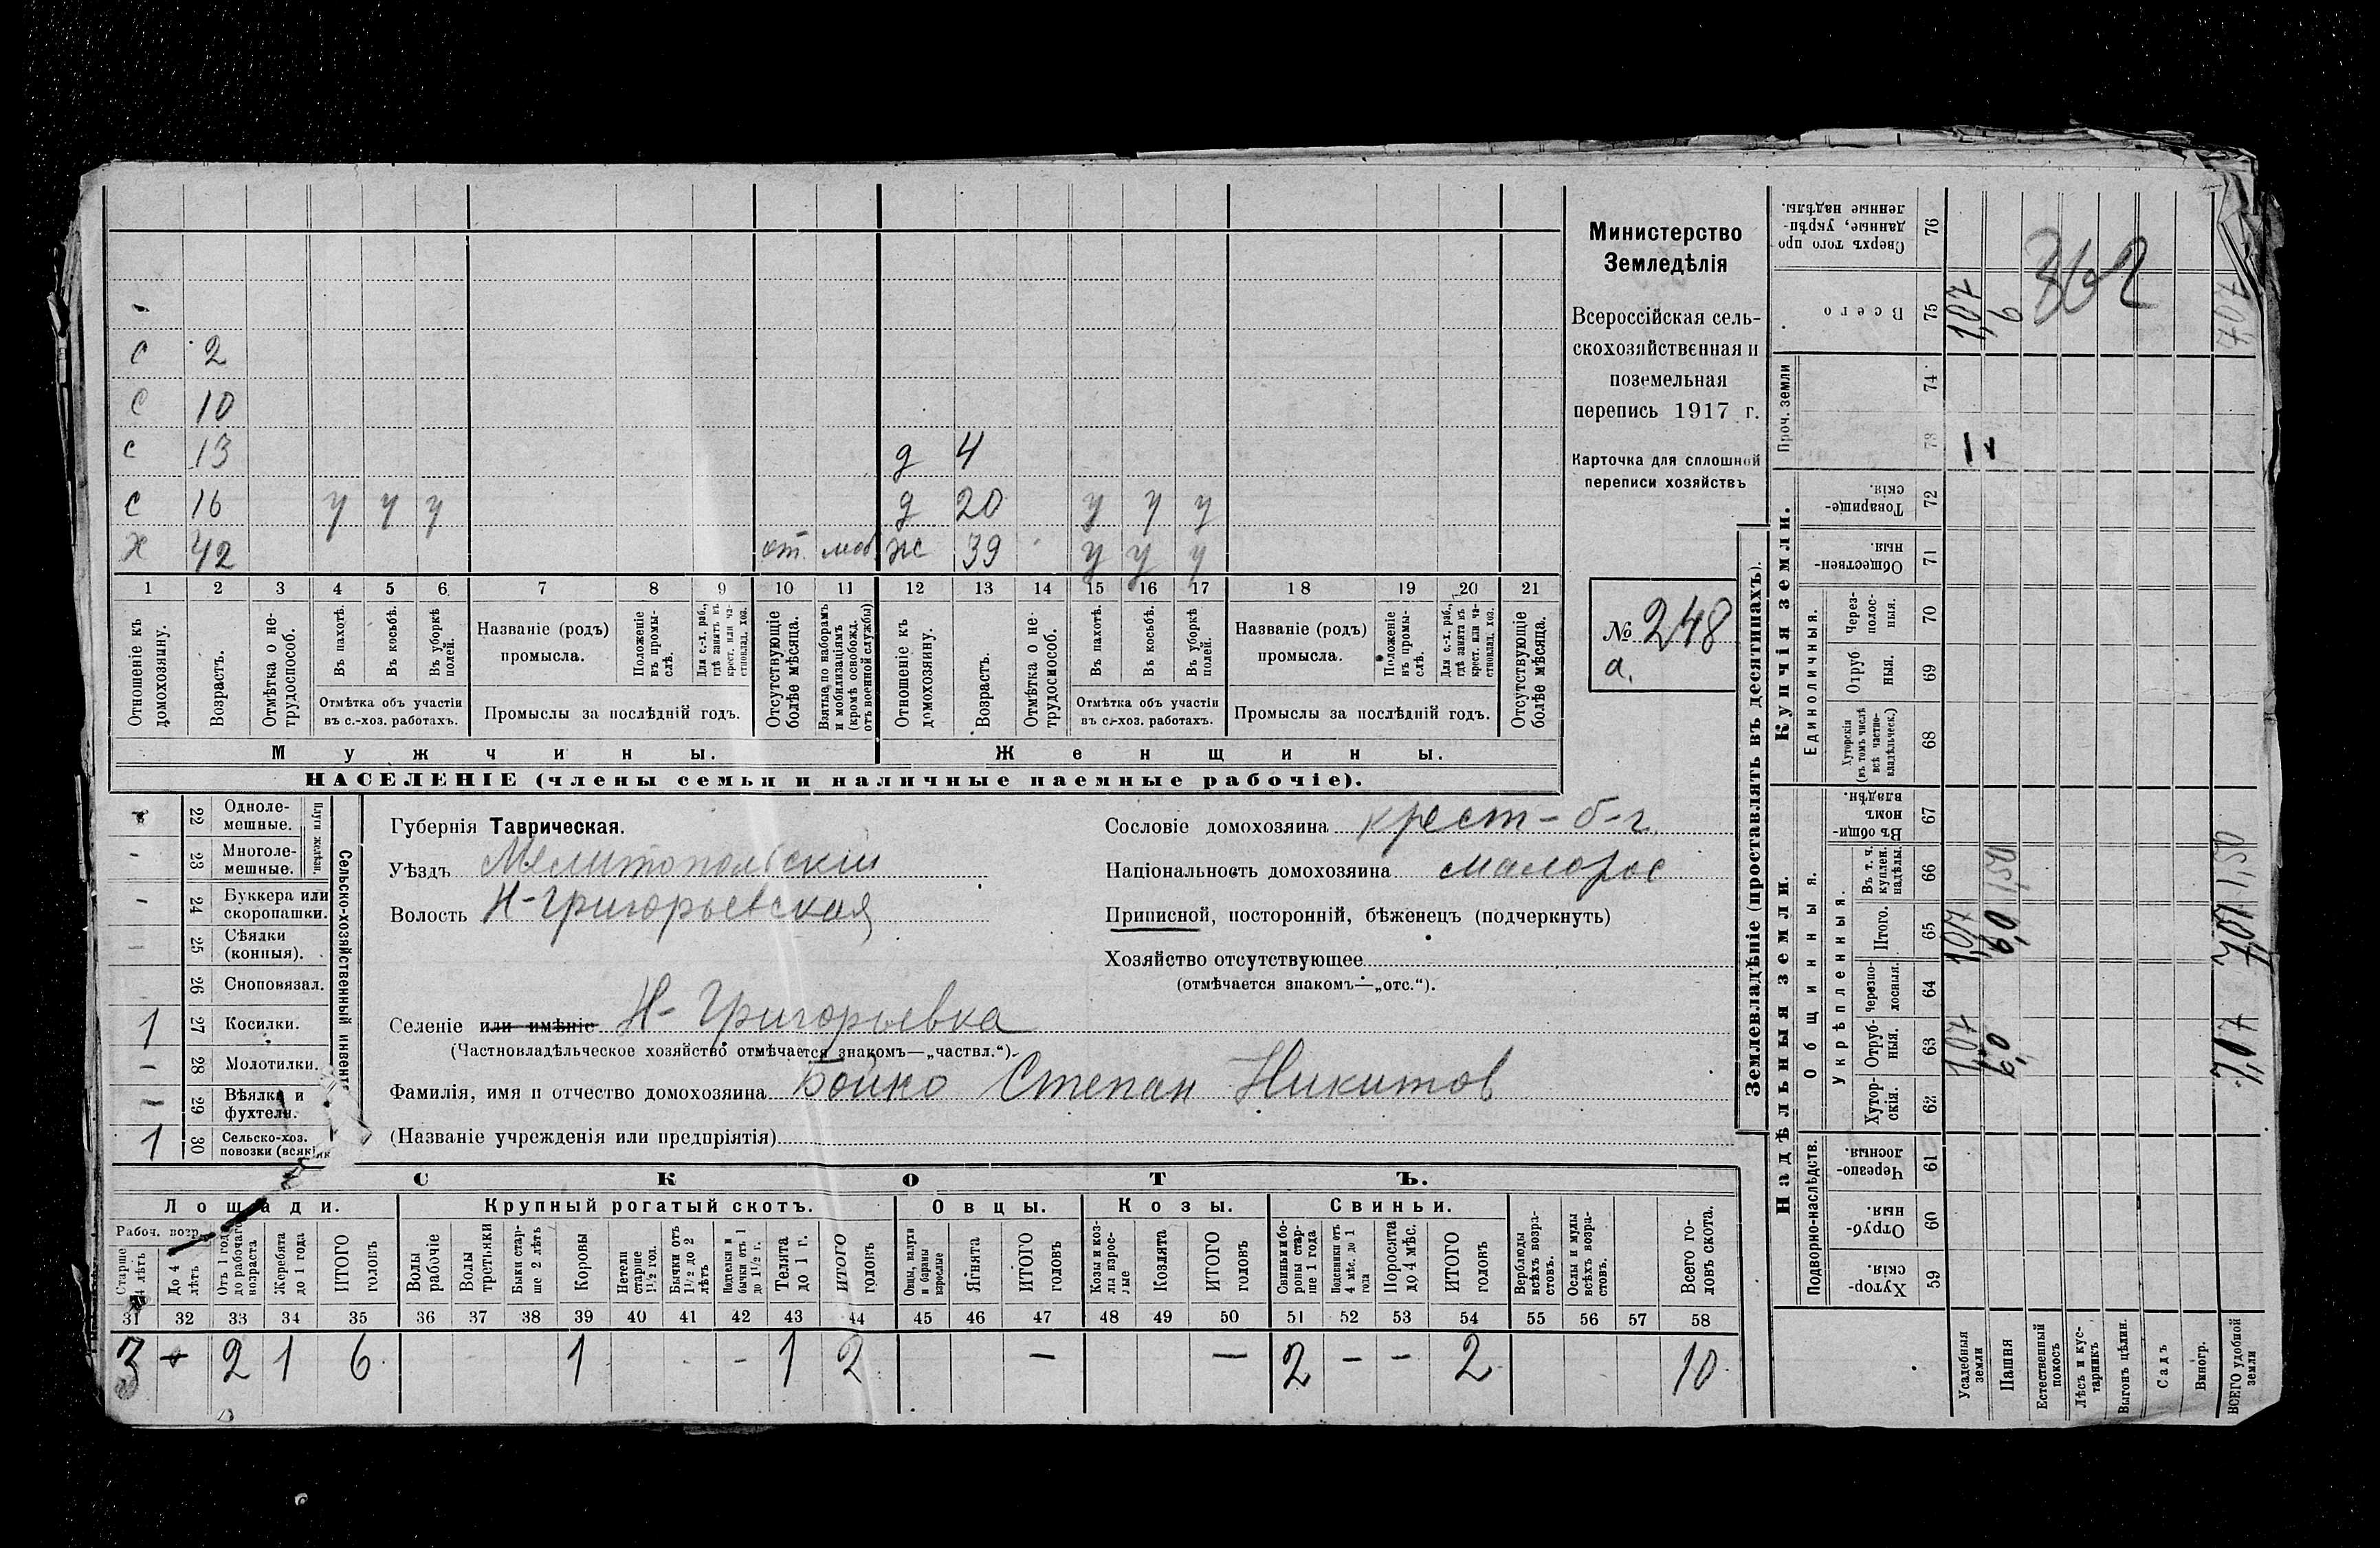 Министерство
Земледѣлія
Всероссійская сель-
скохозяйственная и
поземельная
перепись 1917 г.
Карточка для сплошной
переписи хозяйствъ
№ 248
а.
с 2
с 10
с 13 д 4
с 16 у у у д 20 у у у
х 42 от. моб ж 39 у у у
1 2 3 4 5 6 7 8 9 10 11 12 13 14 15 16 17 18 19 20 21
Отношеніе къ домохозяину.
Возрастъ.
Отмѣтка о не-трудоспособ.
Въ пахотѣ.
Въ косьбѣ.
Въ уборкѣ полей.
Отмѣтка объ участіи
въ с.-хоз. работахъ.
Названіе (родъ)
промысла.
Положеніе въ промы-слѣ.
Для с.-х. раб., гдѣ занятъ въ крест. или ча-стновлад. хоз.
Промыслы за послѣдній годъ.
Отсутствующіе болѣе мѣсяца.
Взятые по наборамъ и мобилизаціямъ (кромѣ освобожд. отъ военной службы)
Отношеніе къ домохозяину.
Возрастъ.
Отмѣтка о не-трудоспособ.
Въ пахотѣ.
Въ косьбѣ.
Въ уборкѣ полей.
Отмѣтка объ участіи
въ с.-хоз. работахъ.
Названіе (родъ)
промысла.
Положеніе въ промы-слѣ.
Для с.-х. раб., гдѣ занята въ крест. или ча-стновлад. хоз.
Промыслы за послѣдній годъ.
Отсутствующіе болѣе мѣсяца.
Мужчины. Женщины.
НАСЕЛЕНІЕ (члены семьи и наличные наемные рабочіе).
Сельско-хозяйственный инвент
Плуги желѣзн.
22 Одноле-мешные.
- 23 Многоле-мешные.
- 24 Буккера или скоропашки.
- 25 Сѣялки (конныя).
26 Сноповязал.
1 27 Косилки.
- 28 Молотилки.
- 29 Вѣялки и фухтели.
1 30 Сельско-хоз. повозки (всяк
Губернія Таврическая.
Уѣздъ Мелитопольскій
Волость Н-Григорьевская
Сословіе домохозяина крест-б-г.
Національность домохозяина малорос
Приписной, посторонній, бѣженецъ (подчеркнуть)
Хозяйство отсутствующее
(отмѣчается знакомъ—„отс.“).
Селеніе или имѣніе Н-Григорьевка
(Частновладѣльческое хозяйство отмѣчается знакомъ—„частвл.“).
Фамилія, имя и отчество домохозяина Бойко Степан Никитов
(Названіе учрежденія или предпріятія)
СКОТЪ.
Лошади. Крупный рогатый скотъ. Овцы. Козы. Свиньи.
Рабоч. возр.
Старше 4 лѣтъ
До 4 лѣтъ
Отъ 1 года до рабочаго возраста
Жеребята до 1 года
ИТОГО головъ
Волы рабочіе
Волы третьяки
Быки стар-ше 2 лѣтъ
Коровы
Нетели старше 1 1/2 год.
Бычки отъ 1 1/2 до 2 лѣтъ
Подтелки и бычки отъ 1 до 1 1/2 г.
Телята до 1 г.
ИТОГО головъ
Овцы, валухи и бараны взрослые
Ягнята
ИТОГО головъ
Козы и коз-лы взрос-лые
Козлята
ИТОГО головъ
Свиньи и бо-ровы стар-ше 1 года
Подсвинки отъ 4 мѣс. до 1 года
Поросята до 4 мѣс.
ИТОГО головъ
Верблюды всѣхъ возра-стовъ.
Ослы и мулы всѣхъ возра-стовъ.
Всего го-ловъ скота.
31 32 33 34 35 36 37 38 39 40 41 42 43 44 45 46 47 48 49 50 51 52 53 54 55 56 57 58
3 2 1 6 1 - 1 2 — — 2 - - 2 10
Землевладѣніе (проставлять въ десятинахъ).
Купчія земли.
Надѣльныя земли.
Сверхъ того про-данные, укрѣп-ленные надѣлы. 76
Всего 75 1,07 6
362
Проч. земли 74 73
Товарище-скія. 72
Обществен-ныя 71
Единоличныя.
Через-полос-ныя. 70
Отруб ныя. 69
Хуторскія (въ томъ числѣ всѣ частно-владѣльческ.) 68
Общинныя.
Укрѣпленныя.
Въ общи-номъ владѣн. 67
Въ т. ч. куплен. надѣлы. 66
Итого. 65 1,07
Черезпо-лосныя. 64
Отруб-ныя. 63 1,07
Хутор-скія. 62
Подворно-наслѣдств.
Черезпо-лосныя. 61
Отруб-ныя. 60
Хутор-скія. 59
Усадебныя земли
Пашня
Естественный покосъ
Лѣсъ и кус-тарникъ
Выгонъ цѣлин.
Садъ
Виногр.
ВСЕГО удобной земли